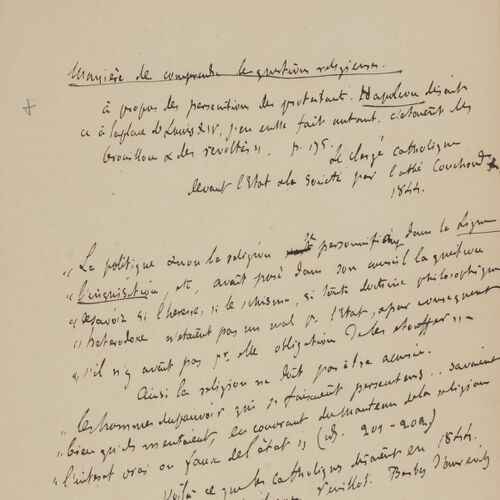 Manière de comprendre les questions religieuses.
à propos des persécutions des protestants. Napoléon disait
« à la place de Louis XIV, j'en eusse fait autant. C'étaient des
brouillons & des révoltés ». p. 195.
Le clergé catholique
devant l'Etat & la Société par l'abbé Couchoud
1844.
« La politique & non la religion personnifiée dans la Ligue
« l'inquisition, etc, avait posé dans son conseil la question
« de savoir si l'hérésie, si le schisme, si toute doctrine philosophique
« hétérodoxe n'étaient pas un mal pr l'Etat, & par conséquent
« s'il n'y avait pas pr elle obligation de les étouffer » —
Ainsi la religion ne doit pas être accusée.
« les hommes du pouvoir qui se faisaient persécuteurs .. savaient
« bien qu'ils mentaient, en couvrant du manteau de la religion
« l'intérêt vrai ou faux de l'état » (id. 201-202)
Voilà ce que les catholiques disaient en 1844.
Veuillot. Barbey d'Aurevilly